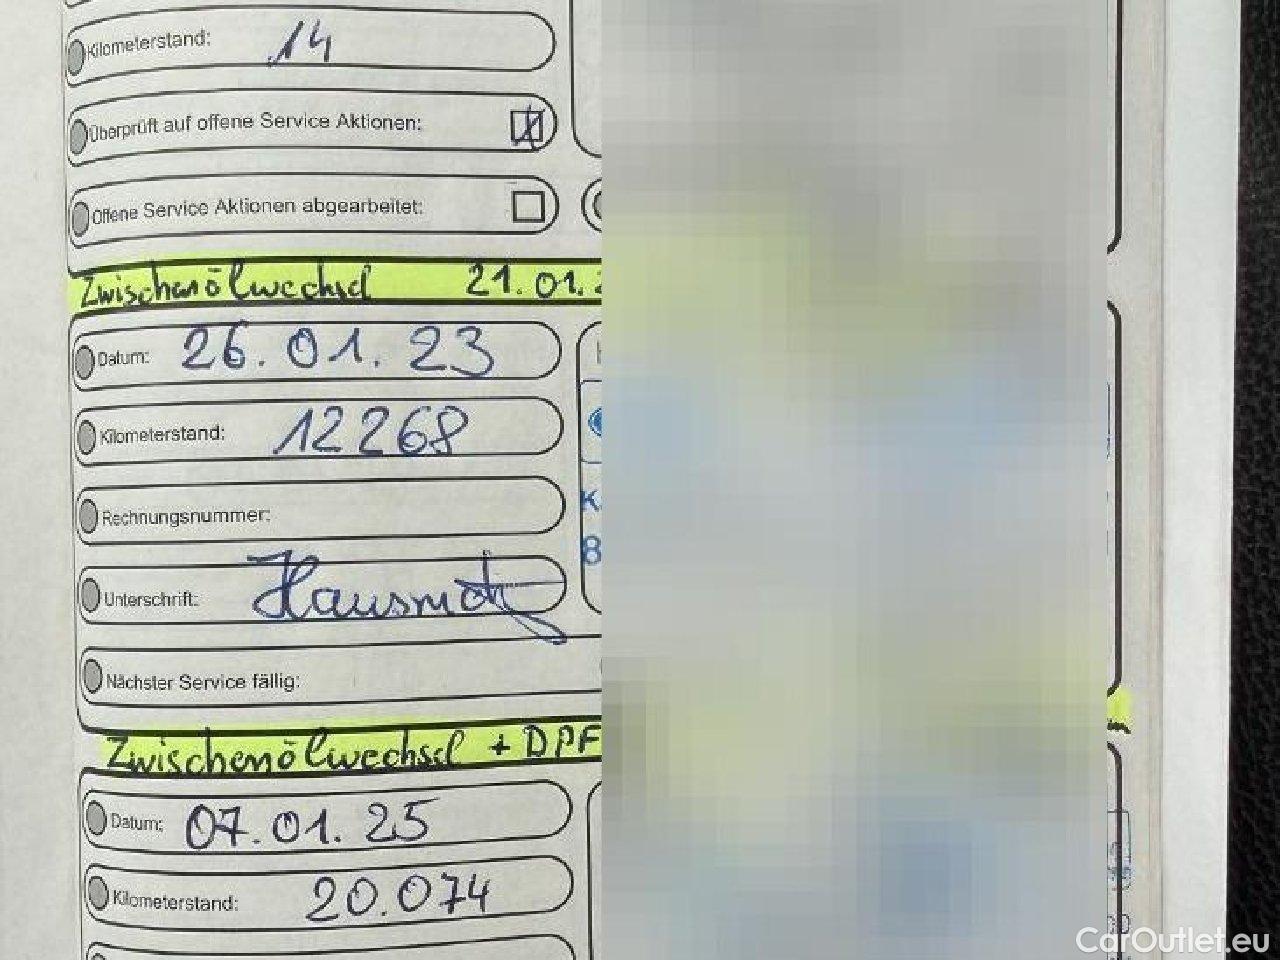 Kilometerstand: 14
Überprüft auf offene Service Aktionen:
Offene Service Aktionen abgearbeitet:
Zwischenölwechsel 21.01.
Datum: 26.01.23
Kilometerstand: 12268
Rechnungsnummer:
Unterschrift:
Nächster Service fällig:
Zwischenölwechsel + DPF
Datum: 07.01.25
Kilometerstand: 20.074
CarOutlet.eu